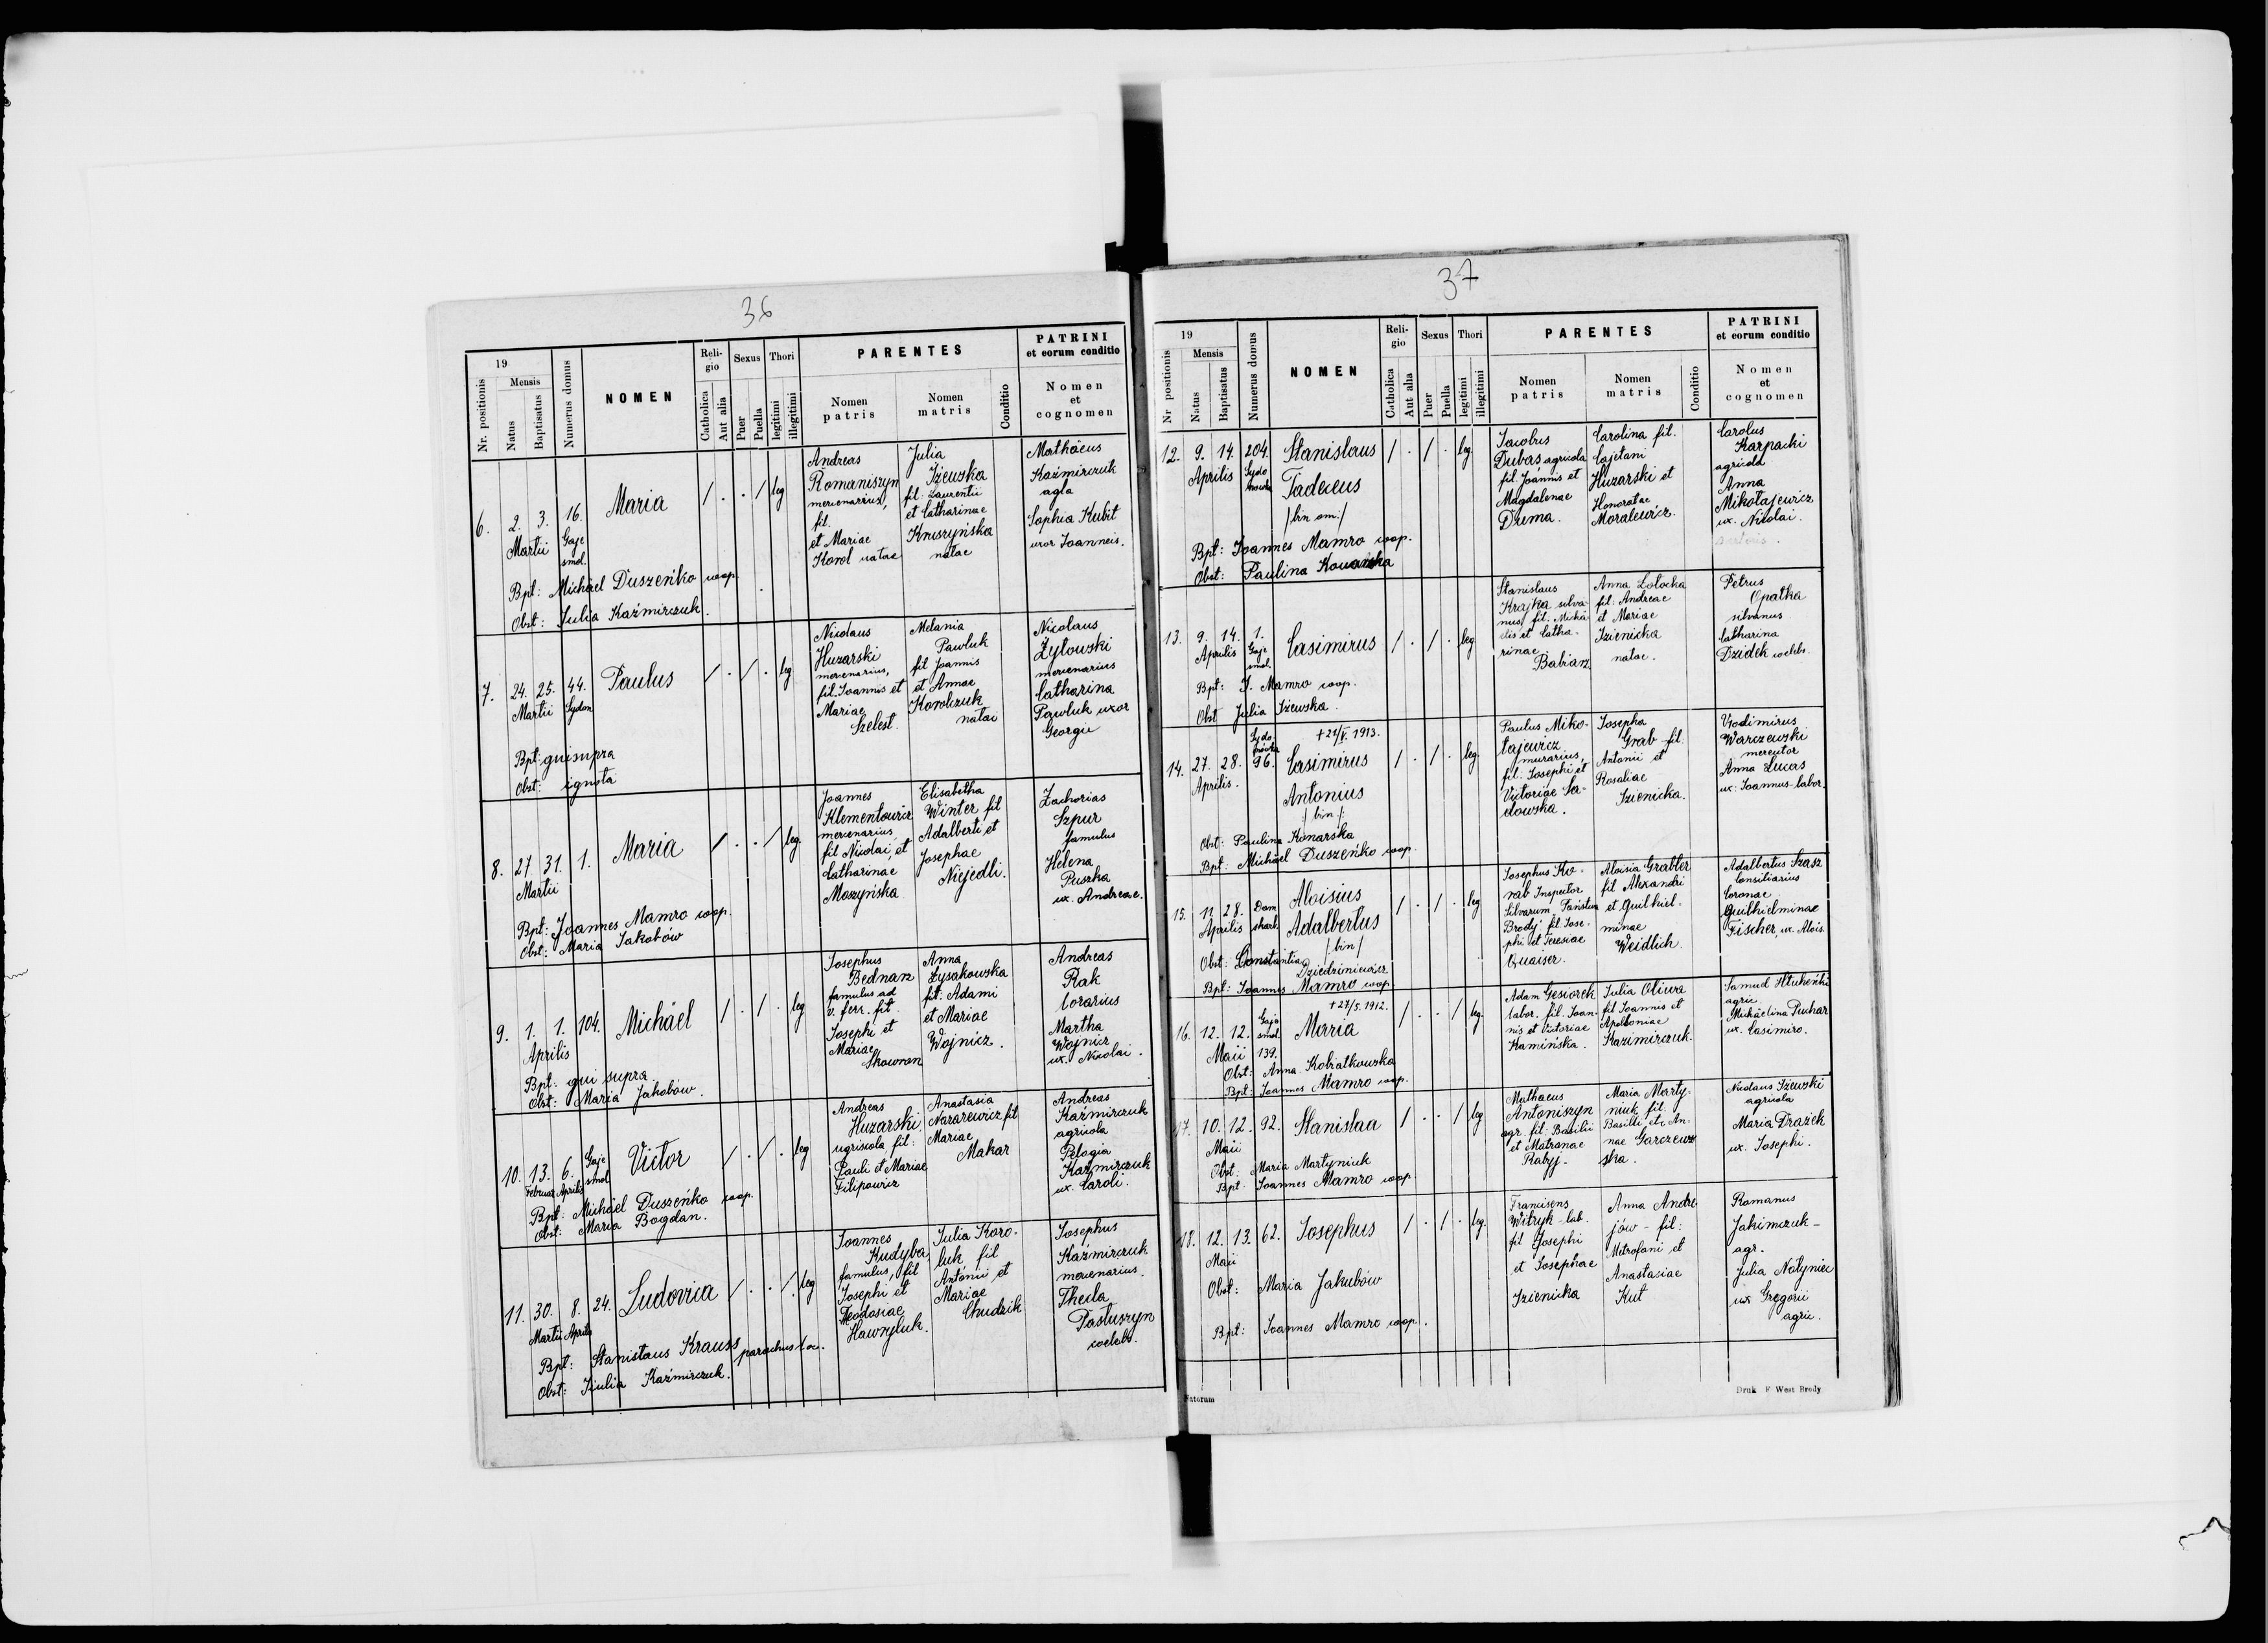 36
19
Nr. positionis
Mensis
Natus
Baptisatus
Numerus domus
NOMEN
Religio
Catholica
Aut alia
Sexus
Puer
Puella
Thori
legitimi
illegitimi
PARENTES
Nomen patris
Nomen matris
Conditio
PATRINI
et eorum conditio
Nomen
et
cognomen
6. 2. 3. 16. Maria / . . / leg
Martii Gaje smol.
Andreas
Romaniszyn
mercenarius,
fil.
et Mariae
Korol natae
Julia
Iżewska
fil: Laurentii
et Catharinae
Kruszyńska
natae
Mathäeus
Kaźmirczuk
agla
Sophia Kubit
uxor Joannis.
Bpt: Michäel Duszeńko coop.
Obst: Julia Kaźmirczuk.
7. 24. 25. 44. Paulus / . / . leg
Martii Sydon
Nicolaus
Huzarski
mercenarius,
fil. Joannis et
Mariae
Szelest.
Melania
Pawluk
fil Joannis
et Annae
Korolczuk
natai
Nicolaus
Żytowski
mercenarius
Catharina
Pawluk uxor
Georgii
Bpt: qui supra
Obst: ignota
8. 27. 31. 1. Maria / . . / leg.
Martii
Joannes
Klementowicz
mercenarius
fil Nicolai, et
Catharinae
Moszyńska
Elisabetha
Winter fil
Adalberti et
Josephae
Niejedli.
Zacharias
Szpur
famulus
Helena
Puszka
ux. Andreae.
Bpt: Joannes Mamro coop.
Obst: Maria Jakobów
9. 1. 1. 104. Michäel / . / . leg
Aprilis
Josephus
Bednarz
famulus ad
v. ferr. fil.
Josephi et
Mariae
Skowron
Anna
Łysakowska
fil: Adami
et Mariae
Wojnicz.
Andreas
Rak
lorarius
Martha
Wojnicz
ux. Nicolai.
Bpt: qui supra.
Obst: Maria Jakobów.
10. 13. 6. Gaje smol Victor / . / . leg
Februar Aprilis
Andreas
Huzarski
agricola fil:
Pauli et Mariae
Filipowicz
Anastasia
Nazarewicz fil
Mariae
Makar
Andreas
Kaźmirczuk
agricola
Pelagia
Kaźmirczuk
ux. Caroli.
Bpt: Michäel Duszeńko coop.
Obst: Maria Bogdan.
11. 30. 8. 24. Ludovica / . . / leg
Martii Aprilis
Joannes
Kudyba
famulus, fil
Josephi et
Teodosiae
Hawryluk.
Julia Koro-
luk fil
Antonii et
Mariae
Chudzik
Josephus
Kaźmirczuk
mercenarius.
Thecla
Pastuszyn
coelebs.
Bpt: Stanislaus Krauss parochus loc.
Obst: Julia Kaźmirczuk.
37
19
Nr positionis
Mensis
Natus
Baptisatus
Numerus domus
NOMEN
Religio
Catholica
Aut alia
Sexus
Puer
Puella
Thori
legitimi
illegitimi
PARENTES
Nomen patris
Nomen matris
Conditio
PATRINI
et eorum conditio
Nomen
et
cognomen
12. 9. 14. 204. Stanislaus / . / . leg.
Aprilis
Tadeus
Jacobus
Dubas agricola
fil. Joannis et
Magdalenae
Duma.
Carolina fil.
Cajetani
Huzarski et
Honoratae
Moralewicz.
Carolus
Karpacki
agricola
Anna
Mikołajewicz
ux. Nicolai.
Bpt: Joannes Mamro coop.
Obst: Paulina
13. 9. 14. 1. Casimirus / . / . leg
Aprilis Gaje smol.
Stanislaus
Krajka silva-
nus, fil. Michä-
elis et Catha-
rinae
Babiarz
Anna Zołocka
fil: Andreae
et Mariae
Izienicka
natae.
Petrus
Opatka
silvanus
Catharina
Dzidek coelebs.
Bpt: J. Mamro coop.
Obst Julia Iżewska.
+21/V. 1913.
14. 27. 28. 96. Casimirus / . / . leg
Aprilis.
Antonius
/ bin /
Paulus Miko-
łajewicz
murarius,
fil. Josephi et
Victoriae Sa-
dowska.
Josepha
Grab fil.
Antonii et
Rosaliae
Izienicka.
Vlodimirus
Warczewski
mercator
Anna Lucas
ux: Joannus labor.
Obst: Paulina Konarska
Bpt: Michäel Duszeńko coop.
15. 11 28. Dom skarb. Aloisius / . / . leg
Aprilis
Adalbertus
/ bin /
Josephus Ko-
rab Inspector
Silvarum
Brody fil. Jose-
phi et Teresiae
Quaiser.
Aloisia Grabler
fil Alexandri
et Guilhiel-
minae
Weidlich.
Adalbertus Szasz
Consiliarius
Coronae.
Guilhielminae
Fischer, ux. Alois.
Obst: Constantia Dziedziniewicz
Bpt: Joannes Mamro coop
+27/5. 1912.
16. 12. 12. Gaje smol. 139. Maria / . . / leg.
Maii
Adam Gesiorek
labor. fil. Joan-
nis et Victoriae
Kamińska.
Julia Oliwa
fil Joannis et
Apolloniae
Kazimirczuk.
agric.
Michäelina Puchar
ux. Casimiro.
Obst: Anna Kobiałkowska
Bpt: Joannes Mamro coop.
17. 10. 12. 92. Stanislaa / . . / leg
Maii
Mathaeus
Antoniszyn
agr. fil. Basilii
et Matronae
Rabyj.
Maria Marty-
niuk fil.
Basilii et An-
nae Garczews-
ska.
Nicolaus Iżewski
agricola
Maria Drażek
ux. Josephi.
Obst. Maria Martyniuk
Bpt. Joannes Mamro coop
18. 12. 13. 62. Josephus / . / . leg.
Maii
Franciscus
Witryk - lab.
fil Josephi
et Josephae
Izienicka
Anna Andre
jów - fil:
Mitrofani et
Anastasiae
Kut
Romanus
Jakimczuk -
agr.
Julia Natyniec
ux Gregorii
agric.
Obst: Maria Jakubów
Bpt: Joannes Mamro coop.
Natorum
Druk F West Brody